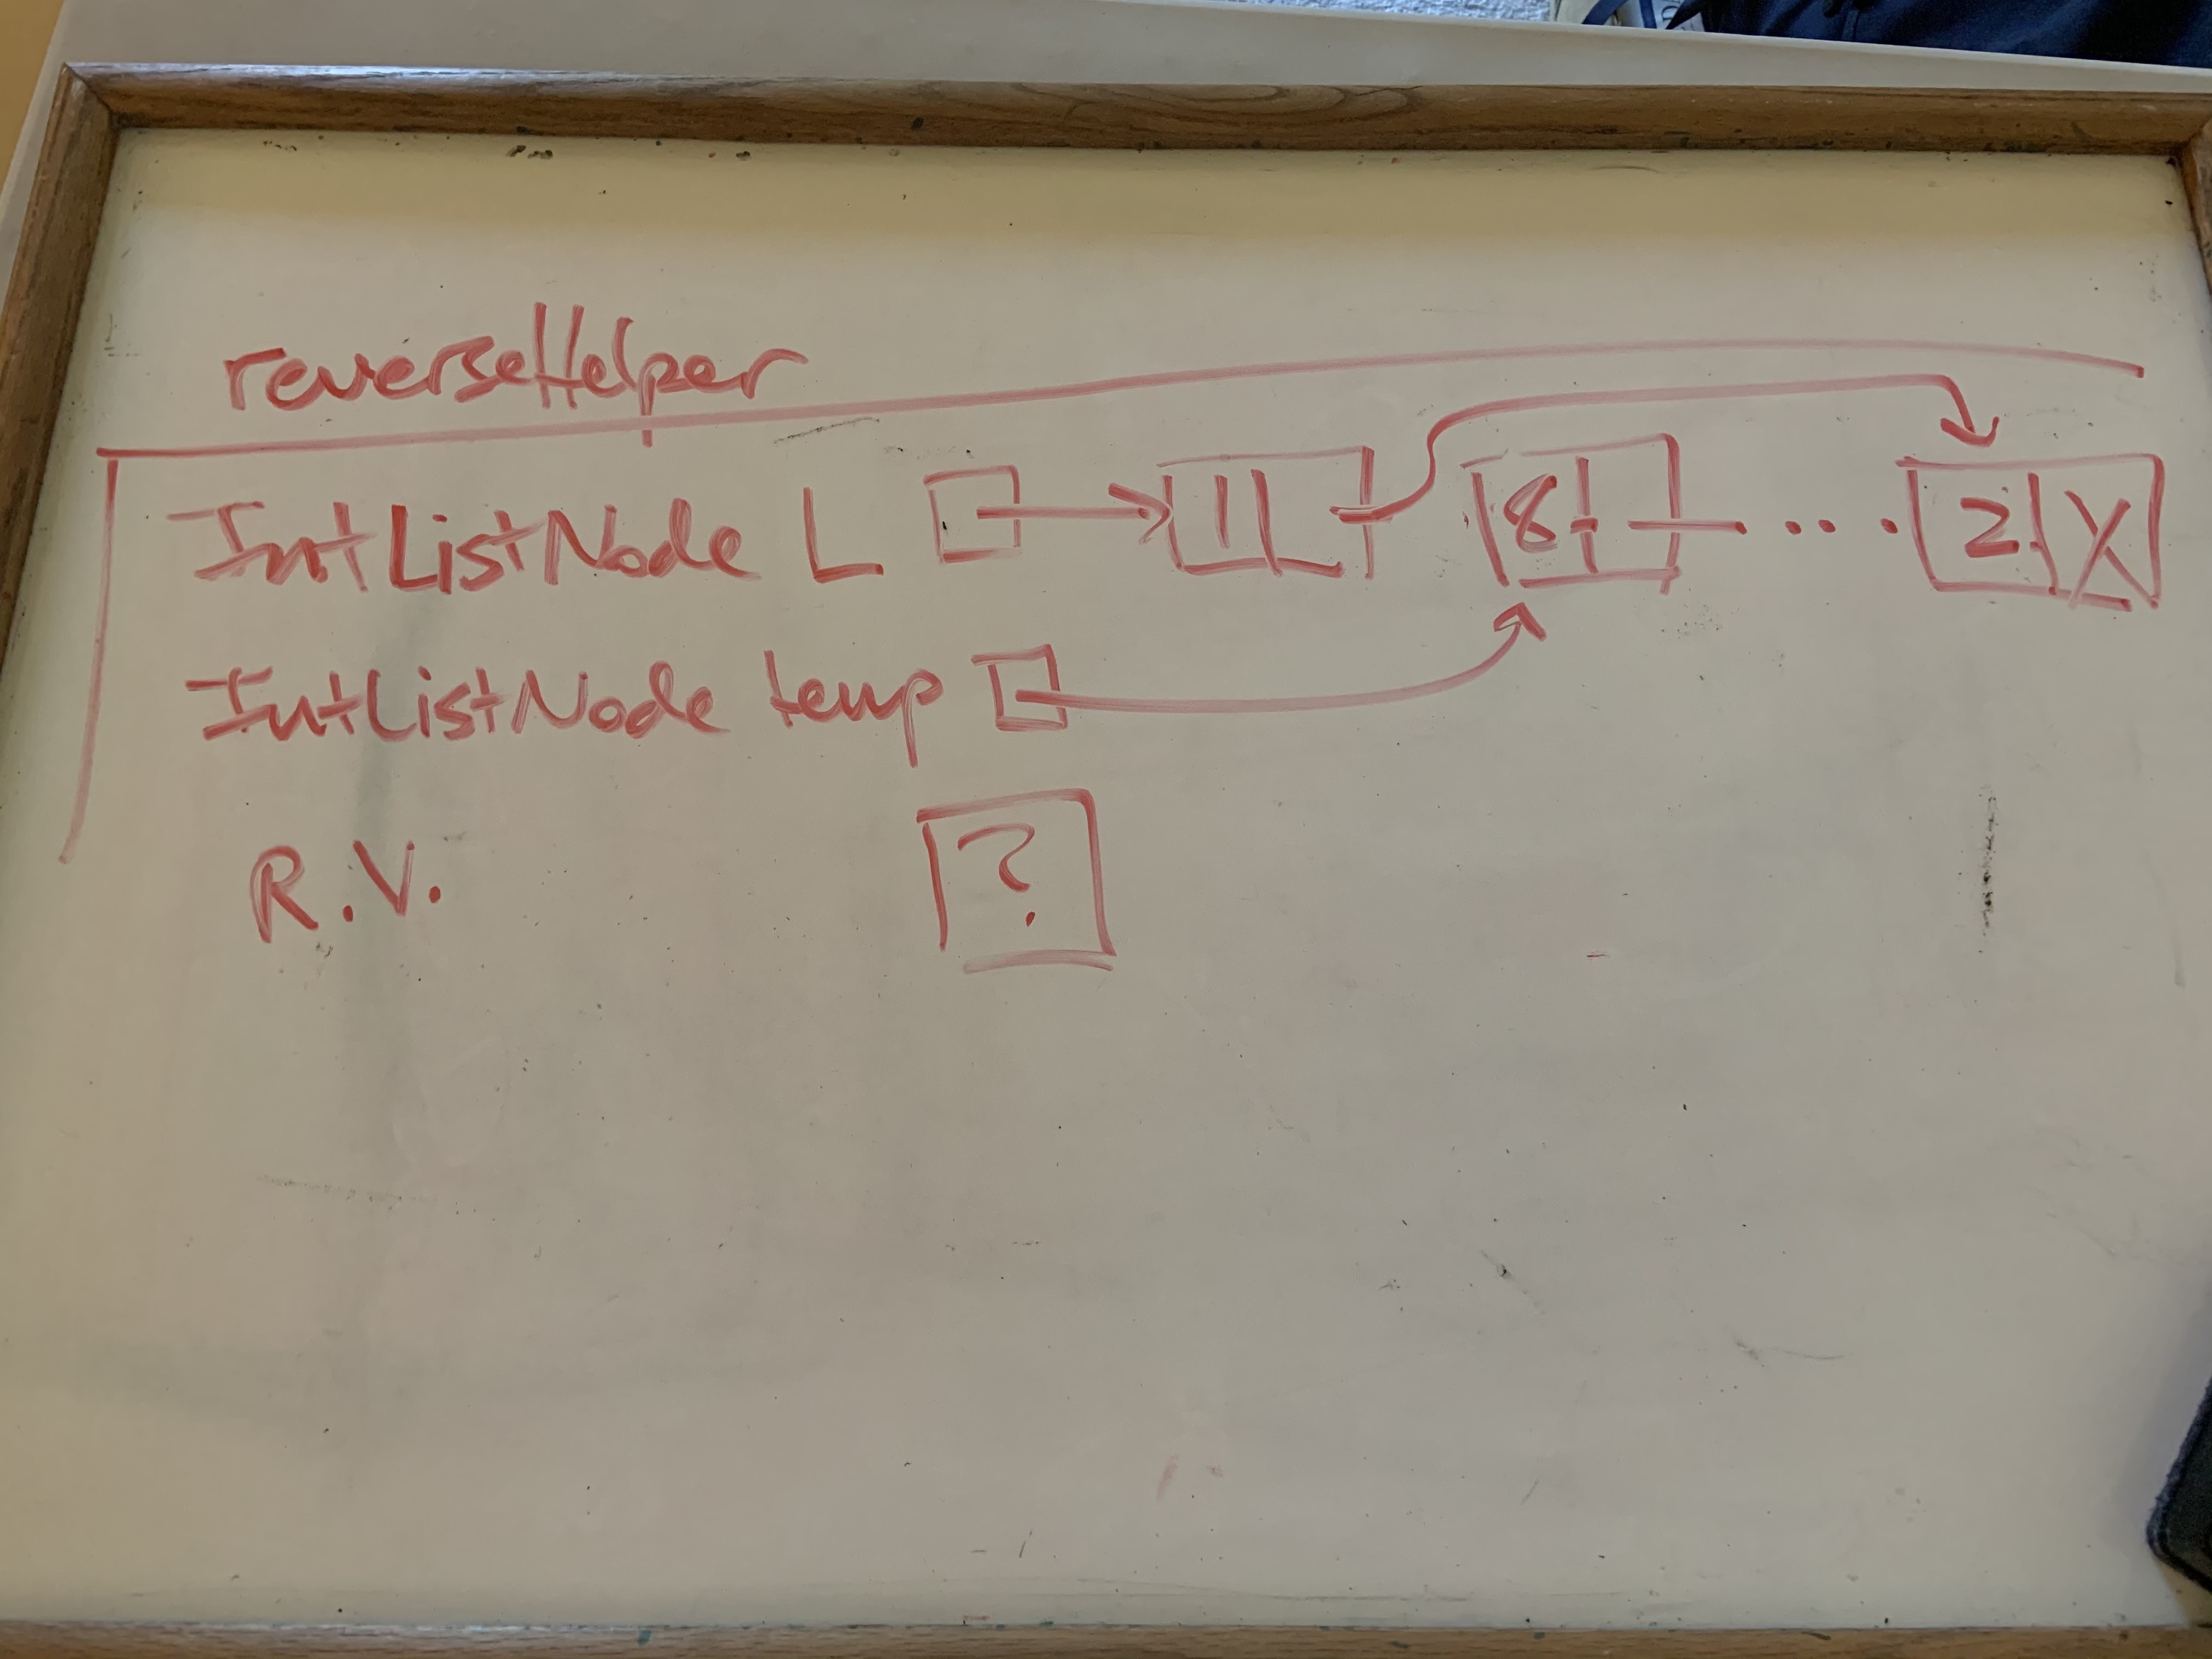 reverseHelper
IntListNode L 1 8 ... 2 X
IntListNode temp
R.V. ?